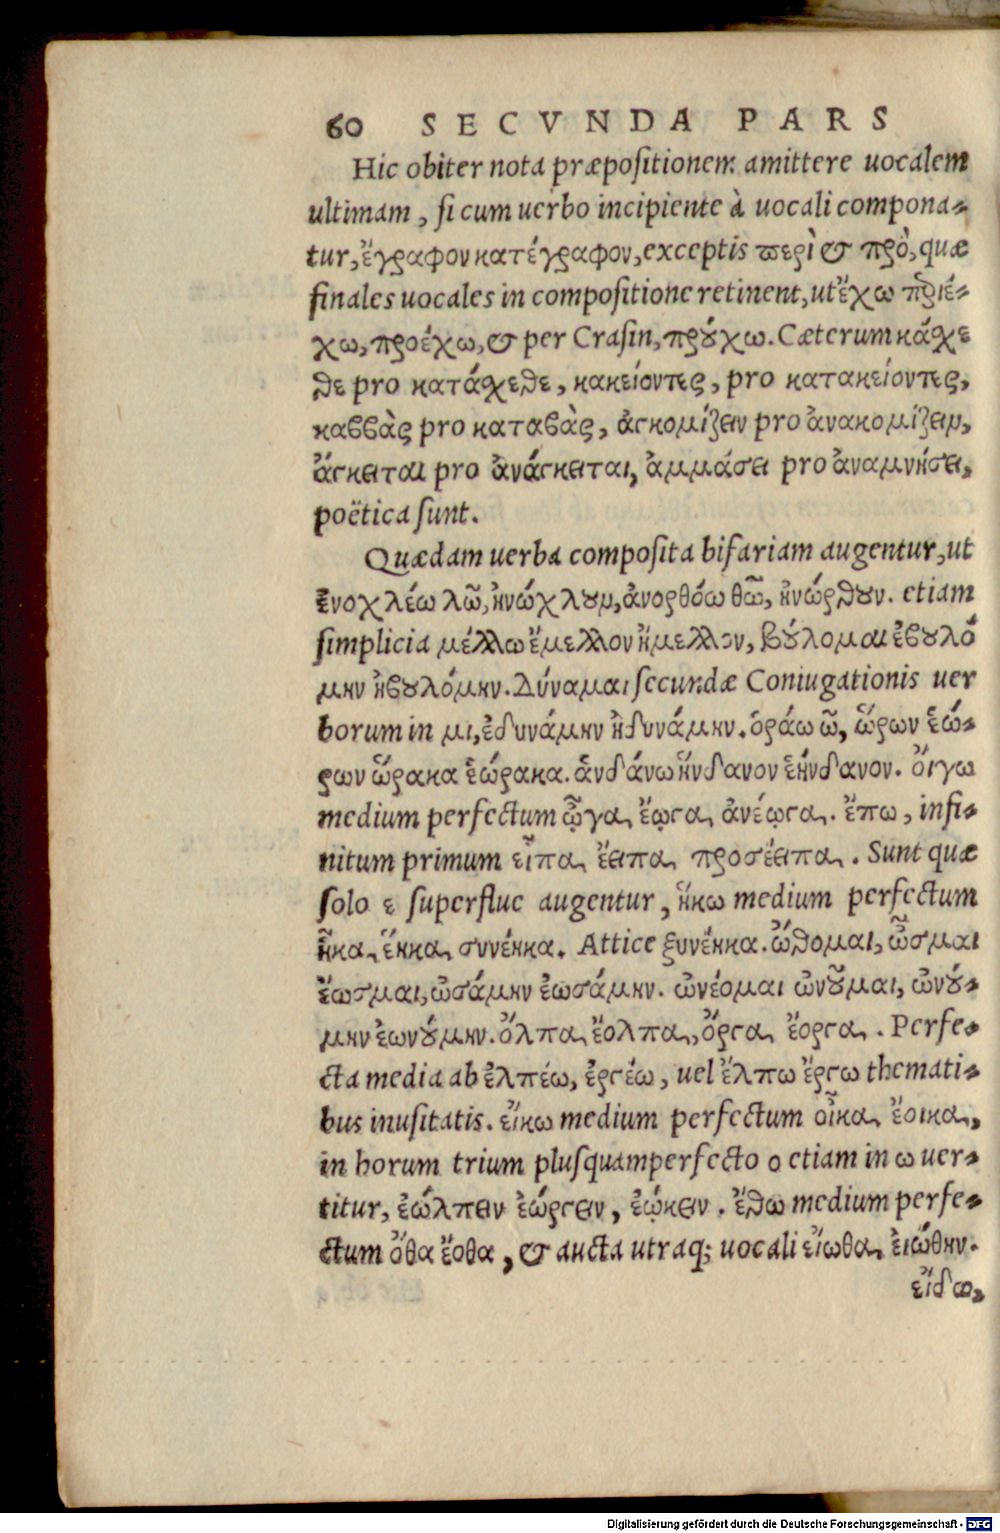 60 SECVNDA PARS
Hic obiter nota præpositionem amittere uocalem
ultimam, si cum uerbo incipiente à uocali compona-
tur, ἔγραφον κατέγραφον, exceptis περὶ & πρὸ, quæ
finales uocales in compositione retinent, ut ἔχω περιέ-
χω, προέχω, & per Crasin, προύχω. Cæterum κάσχε
θε pro κατάσχεθε, κακείοντες, pro κατακείοντες,
καββὰς pro καταβὰς, ἀγκομίζειν pro ἀνακομίζειν,
ἄγκειται pro ἀνάγκειται, ἀμμάσει pro ἀναμνήσει,
poëtica sunt.
Quædam uerba composita bifariam augentur, ut
ἐνοχλέω λῶ, ἠνώχλουν, ἀνορθόω θῶ, ἠνώρθουν. etiam
simplicia μέλλω ἔμελλον ἤμελλον, βούλομαι ἐβουλό
μην ἠβουλόμην. Δύναμαι secundæ Coniugationis uer
borum in μι, ἐδυνάμην ἠδυνάμην. ὁράω ῶ, ὥρων ἑώ-
ρων ὥρακα ἑώρακα. ἁνδάνω ἥνδανον ἑήνδανον. ὄιγω
medium perfectum ᾦγα, ἔῳγα, ἀνέῳγα. ἔπω, infi-
nitum primum εἶπα, ἔειπα, προσέειπα. Sunt quæ
solo ε superflue augentur, ἥκω medium perfectum
ἧκα, ἕηκα, συνέηκα. Attice ξυνέηκα. ὤθομαι, ὦσμαι
ἔωσμαι, ὠσάμην ἐωσάμην. ὠνέομαι ὠνοῦμαι, ὠνού-
μην ἐωνούμην. ὄλπα, ἔολπα, ὄργα, ἔοργα. Perfe-
cta media ab ἐλπέω, ἐργέω, uel ἔλπω ἔργω themati-
bus inusitatis. εἴκω medium perfectum οἶκα, ἔοικα,
in horum trium plusquamperfecto ο etiam in ω uer-
titur, ἐώλπειν ἐώργειν, ἐῴκειν. ἔθω medium perfe-
ctum ὄθα ἔοθα, & aucta utraq; uocali εἴωθα, ἐιώθην.
εἴδω,
Digitalisierung gefördert durch die Deutsche Forschungsgemeinschaft - DFG